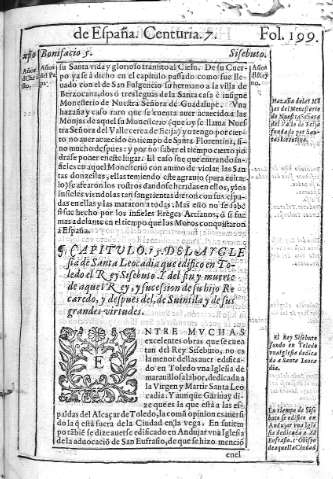 de España. Centuria. 7. Fol. 199.
Bonifacio 5. Sisebuto.
su Santa vida y glorioso transito al Cielo. De su Cuerpo
ya se á dicho en el capitulo passado como fue lleuado
con el de San Fulgencio su hermano a la villa de
Berzocana, dos ó tres leguas de la Santa casa é insigne
Monesterio de Nuestra Señora de Guadalupe. Vna
hazaña y caso raro que se cuenta auer acontecido a las
Monjas de aquel su Monesterio (que oy se llama Nuestra
Señora del Valle cerca de Ecija) yo tengo por cierto
no auer acontecido en tiempo de Santa Florentina, sino
mucho despues: y por no saber el tiempo cierto podrásse
poner en este lugar. El caso fue que entrando infieles
en aquel Monesterio con animo de violar las Santas
donzellas, ellas teniendo
se afearon los rostros dandose heridas en ellos, y los
infieles viendolas tan sangrientas
espadas en ellas y las mataron a todas. Mas esto no sé
si fue hecho por los infieles Ereges Arrianos, ó si fue
mas adelante en el tiempo que los Moros conquistaron
a España.
¶ CAPITVLO. 15. DEL A YGLE
sia de Santa Leocadia que edifico en Toledo
el Rey Sisebuto. Y del fin y muerte
de aquel Rey, y sucession de su hijo Recaredo,
y despues del, de Suintila y de sus
grandes virtudes.
ENTRE MVCHAS
excelentes obras que se cuentan
del Rey Sisebuto, no es
la menor dellas auer edificado
en Toledo vna Iglesia de
marauillosa labor, dedicada a
la Virgen y Martir Santa Leocadia.
Y aunque Garibay dize
que es la que está a las espaldas
del Alcaçar de Toledo, la comú opinion es auer sido
la q̃ está fuera de la Ciudad en la vega. En su tiempo
tãbiẽ se dize auerse edificado en Andujar vna Iglesia
de la aduocació de San Eufrasio, de que se hizo menció
enel
Hazaña de las Monjas
del Monesterio
de Nuestra Señora
del Valle de Ecija
fundado por San
El Rey Sisebuto
fundó en Toledo
vna Iglesia dedicada
a Santa Leocadia.
En tiempo de Sisebuto
se edifico en
Andujar vna Iglesia
dedicada a San
Eufrasio, Obispo
de aquella Ciudad.